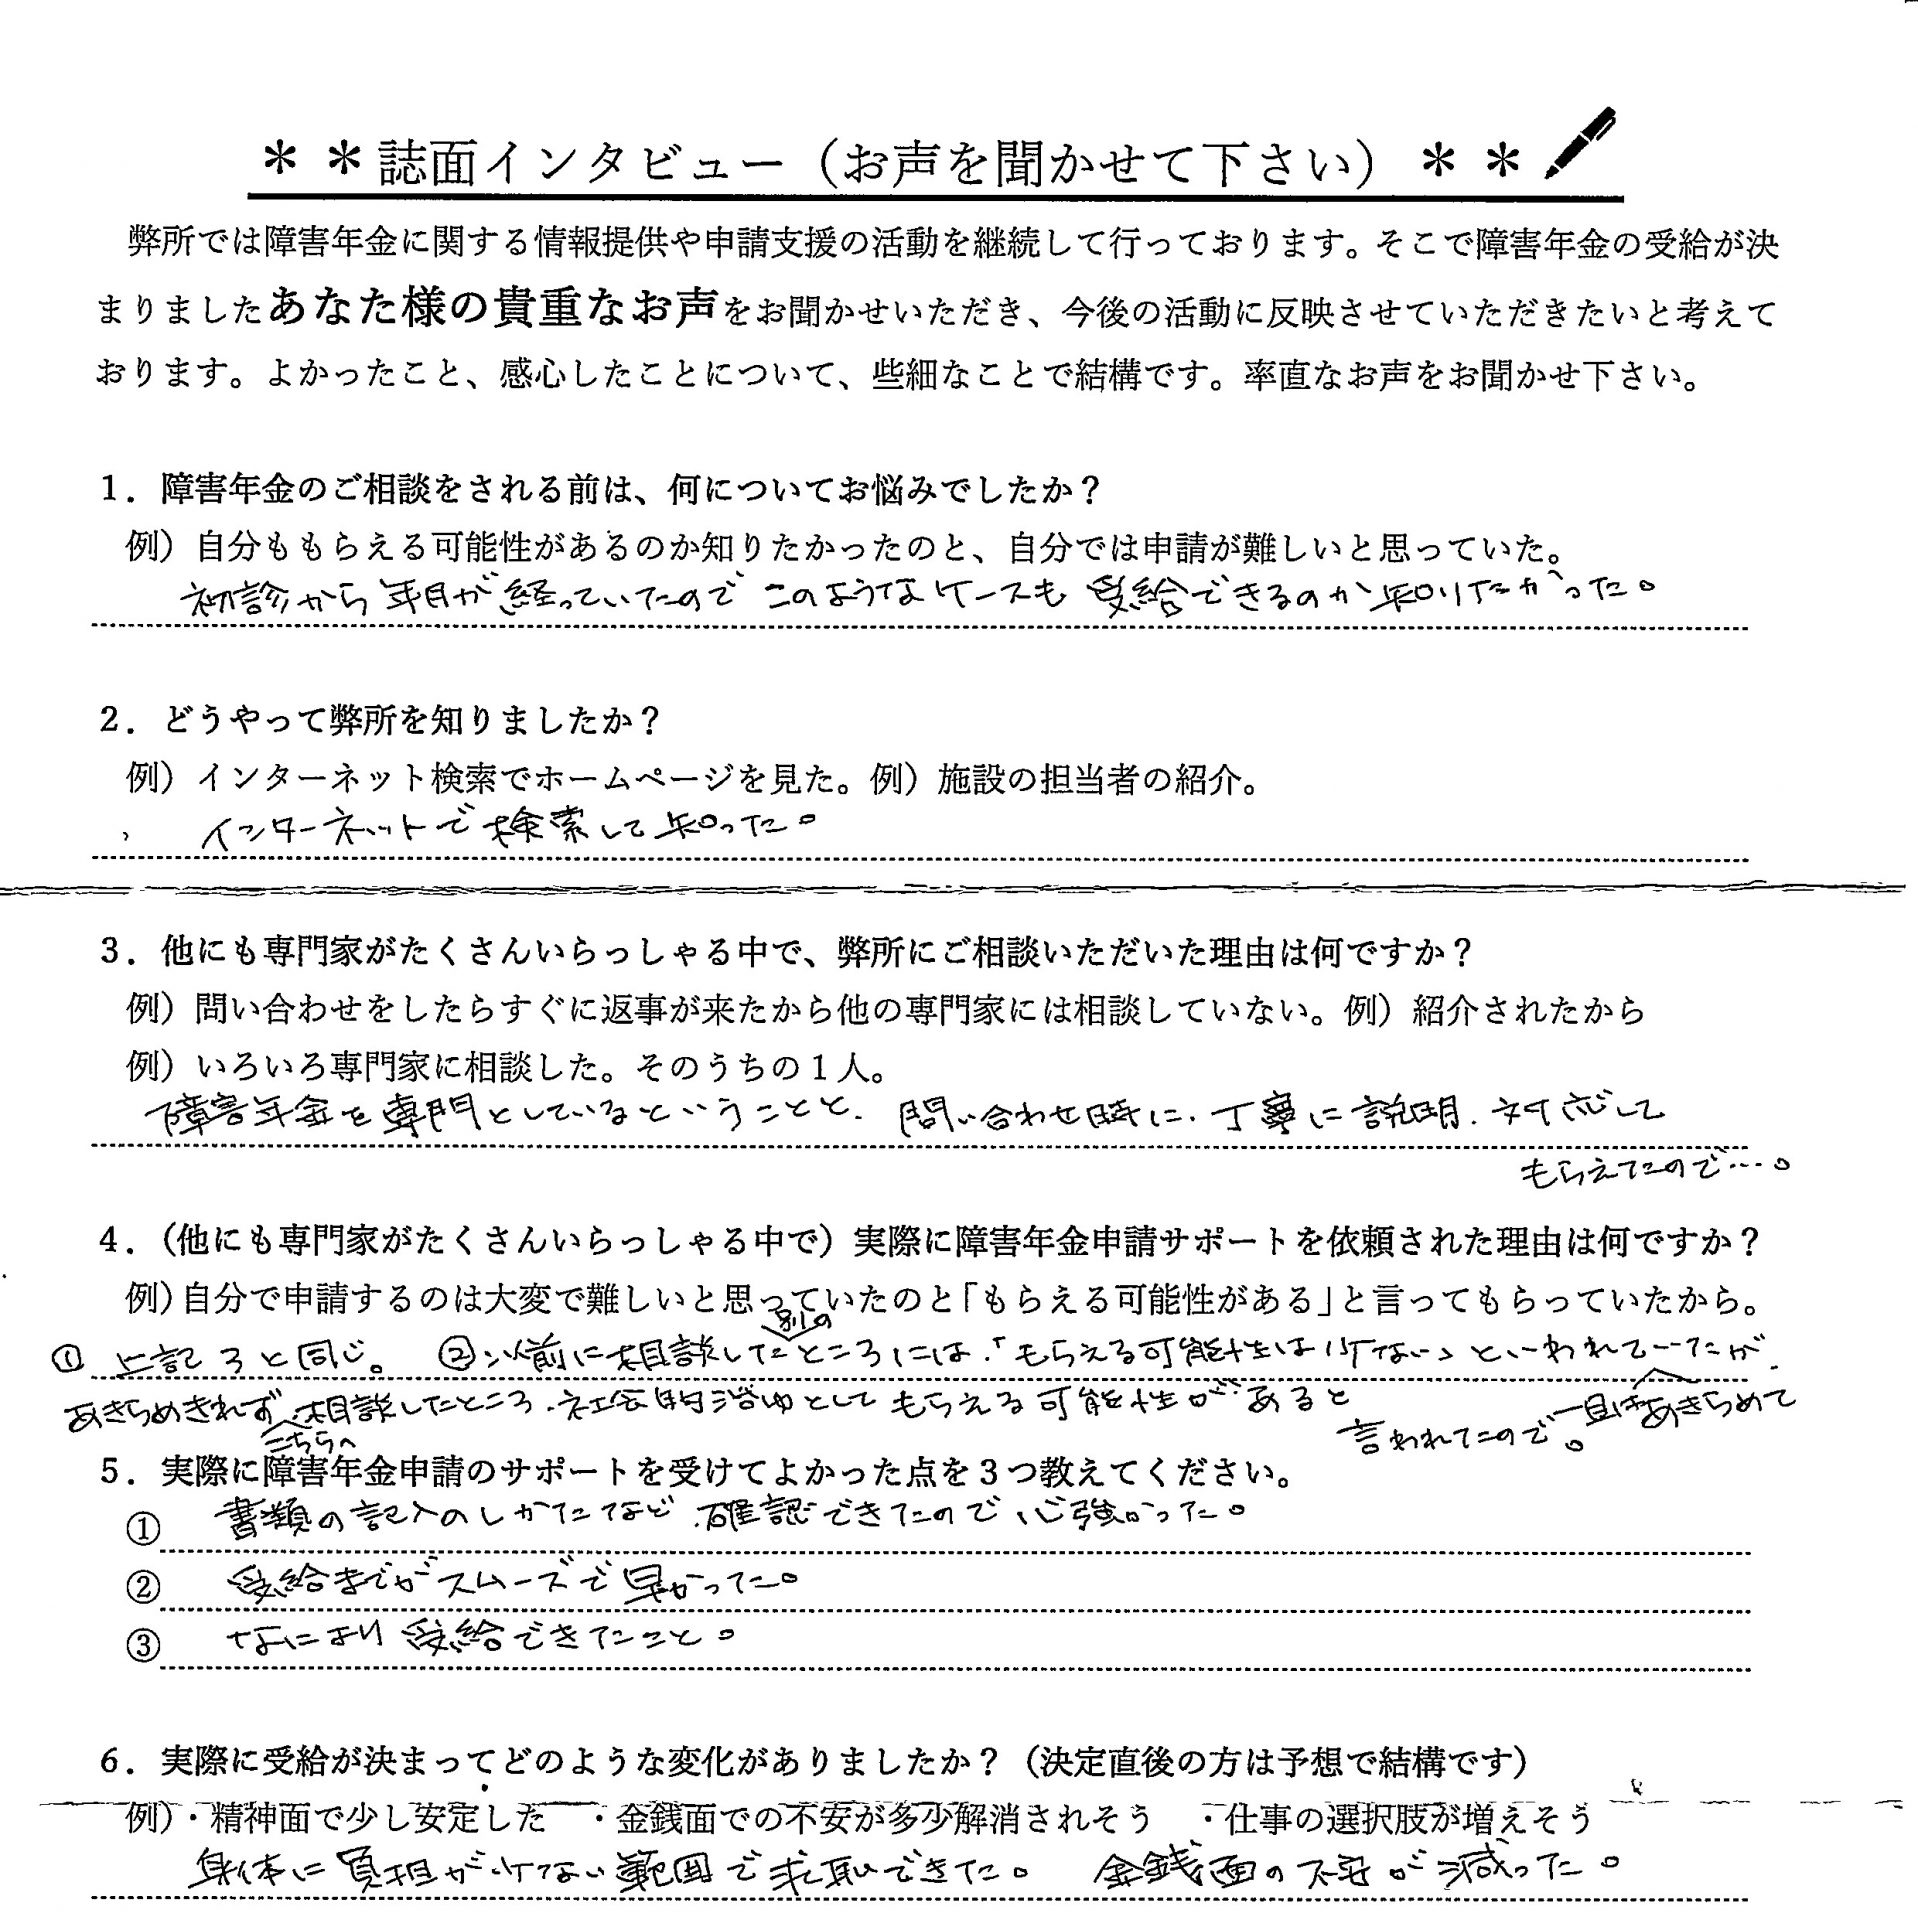 ＊＊誌面インタビュー（お声を聞かせて下さい）＊＊
弊所では障害年金に関する情報提供や申請支援の活動を継続して行っております。そこで障害年金の受給が決
まりましたあなた様の貴重なお声をお聞かせいただき、今後の活動に反映させていただきたいと考えて
おります。よかったこと、感心したことについて、些細なことで結構です。率直なお声をお聞かせ下さい。
1．障害年金のご相談をされる前は、何についてお悩みでしたか？
例）自分ももらえる可能性があるのか知りたかったのと、自分では申請が難しいと思っていた。
初診から年月が経っていたので このようなケースも 受給できるのか知りたかった。
2．どうやって弊所を知りましたか？
例）インターネット検索でホームページを見た。例）施設の担当者の紹介。
インターネットで検索して知った。
3．他にも専門家がたくさんいらっしゃる中で、弊所にご相談いただいた理由は何ですか？
例）問い合わせをしたらすぐに返事が来たから他の専門家には相談していない。例）紹介されたから
例）いろいろ専門家に相談した。そのうちの１人。
障害年金を専門としているということと、問い合わせ時に、丁寧に説明、対応して
もらえたので…。
4．（他にも専門家がたくさんいらっしゃる中で）実際に障害年金申請サポートを依頼された理由は何ですか？
例）自分で申請するのは大変で難しいと思っていたのと「もらえる可能性がある」と言ってもらっていたから。
別の
① 上記３と同じ。 ②以前に相談したところには、「もらえる可能性は少ない」といわれていたが、
一旦はあきらめて
あきらめきれず、相談したところ、社会的治ゆとして もらえる可能性があると
こちらへ
言われたので。
5．実際に障害年金申請のサポートを受けてよかった点を３つ教えてください。
① 書類の記入のしかたなど、確認できたので心強かった。
② 受給までがスムーズで早かった。
③ なにより 受給できたこと。
6．実際に受給が決まってどのような変化がありましたか？（決定直後の方は予想で結構です）
例）・精神面で少し安定した ・金銭面での不安が多少解消されそう ・仕事の選択肢が増えそう
身体に負担が少ない範囲で求職できた。 金銭面の不安が減った。